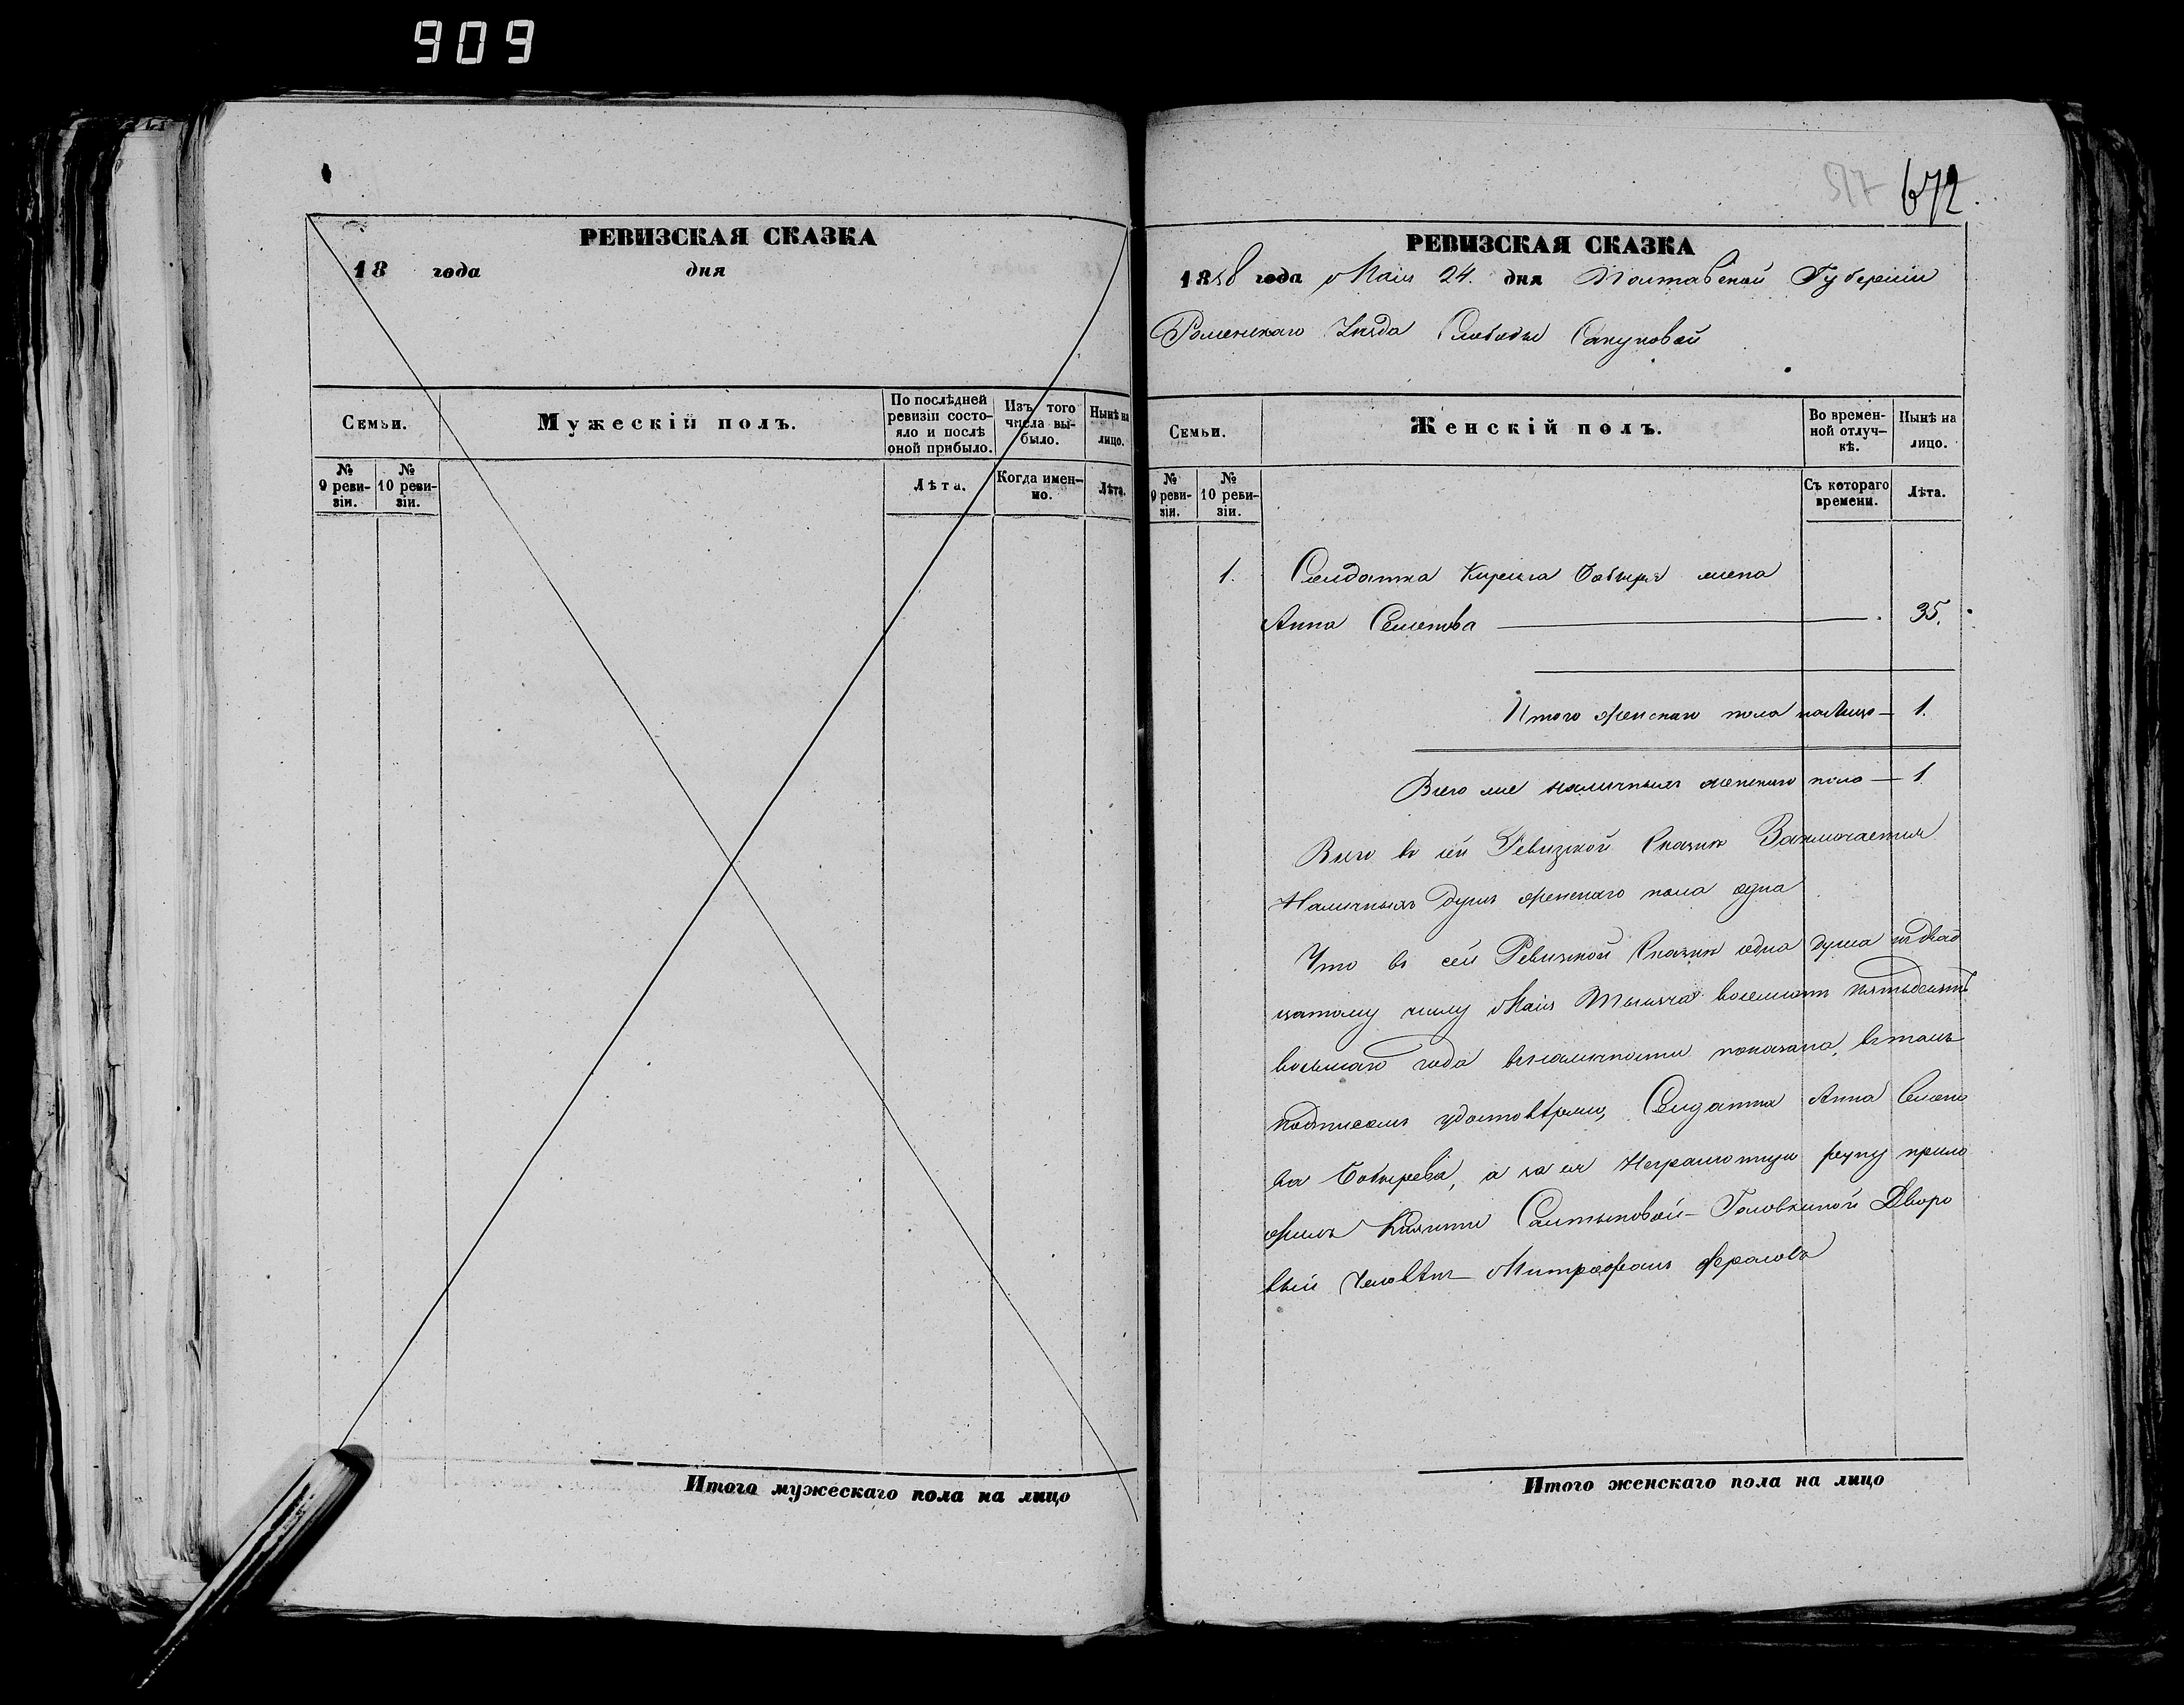 909
РЕВИЗСКАЯ СКАЗКА
18 года дня
Семьи.
Мужескій полъ.
По послѣдней ревизіи состо-
яло и послѣ
оной прибыло.
Изъ того
числа вы-
было.
Нынѣ на
лицо.
№
9 реви-
зіи.
№
10 реви-
зіи.
Лѣта.
Когда имен-
но.
Лѣта.
Итого мужескаго пола на лицо
517 672
РЕВИЗСКАЯ СКАЗКА
1858 года Маія 24. дня Полтавской Губерніи
Роменскаго Уезда Слободы Сакуновой
Семьи.
Женскій полъ.
Во времен-
ной отлуч-
кѣ.
Нынѣ на
лицо.
№
9 реви-
зіи.
№
10 реви-
зіи.
Съ котораго
времени.
Лѣта.
1. Солдатка Кирила жена
Анна Семенова 35.
Итого женскаго пола налицо 1.
Всего наличныхъ женскаго пола 1
Всего въ сей Ревизской Сказкѣ Заключается
Наличныхъ душъ женскаго пола одна
Что въ сей Ревизской Сказкѣ одна душа кдвад
цатому числу Маія Тысяча восемсотъ пятьдесятъ
восьмаго года вналичности показана, втомъ
подписомъ удостовѣряю, Солдатка Анна Семено
ва Бобырева, а за ея Неграмотную руку прило
жилъ Салтыковой-Головкиной Дворо
вый Человѣкъ Митрофанъ
Итого женскаго пола на лицо